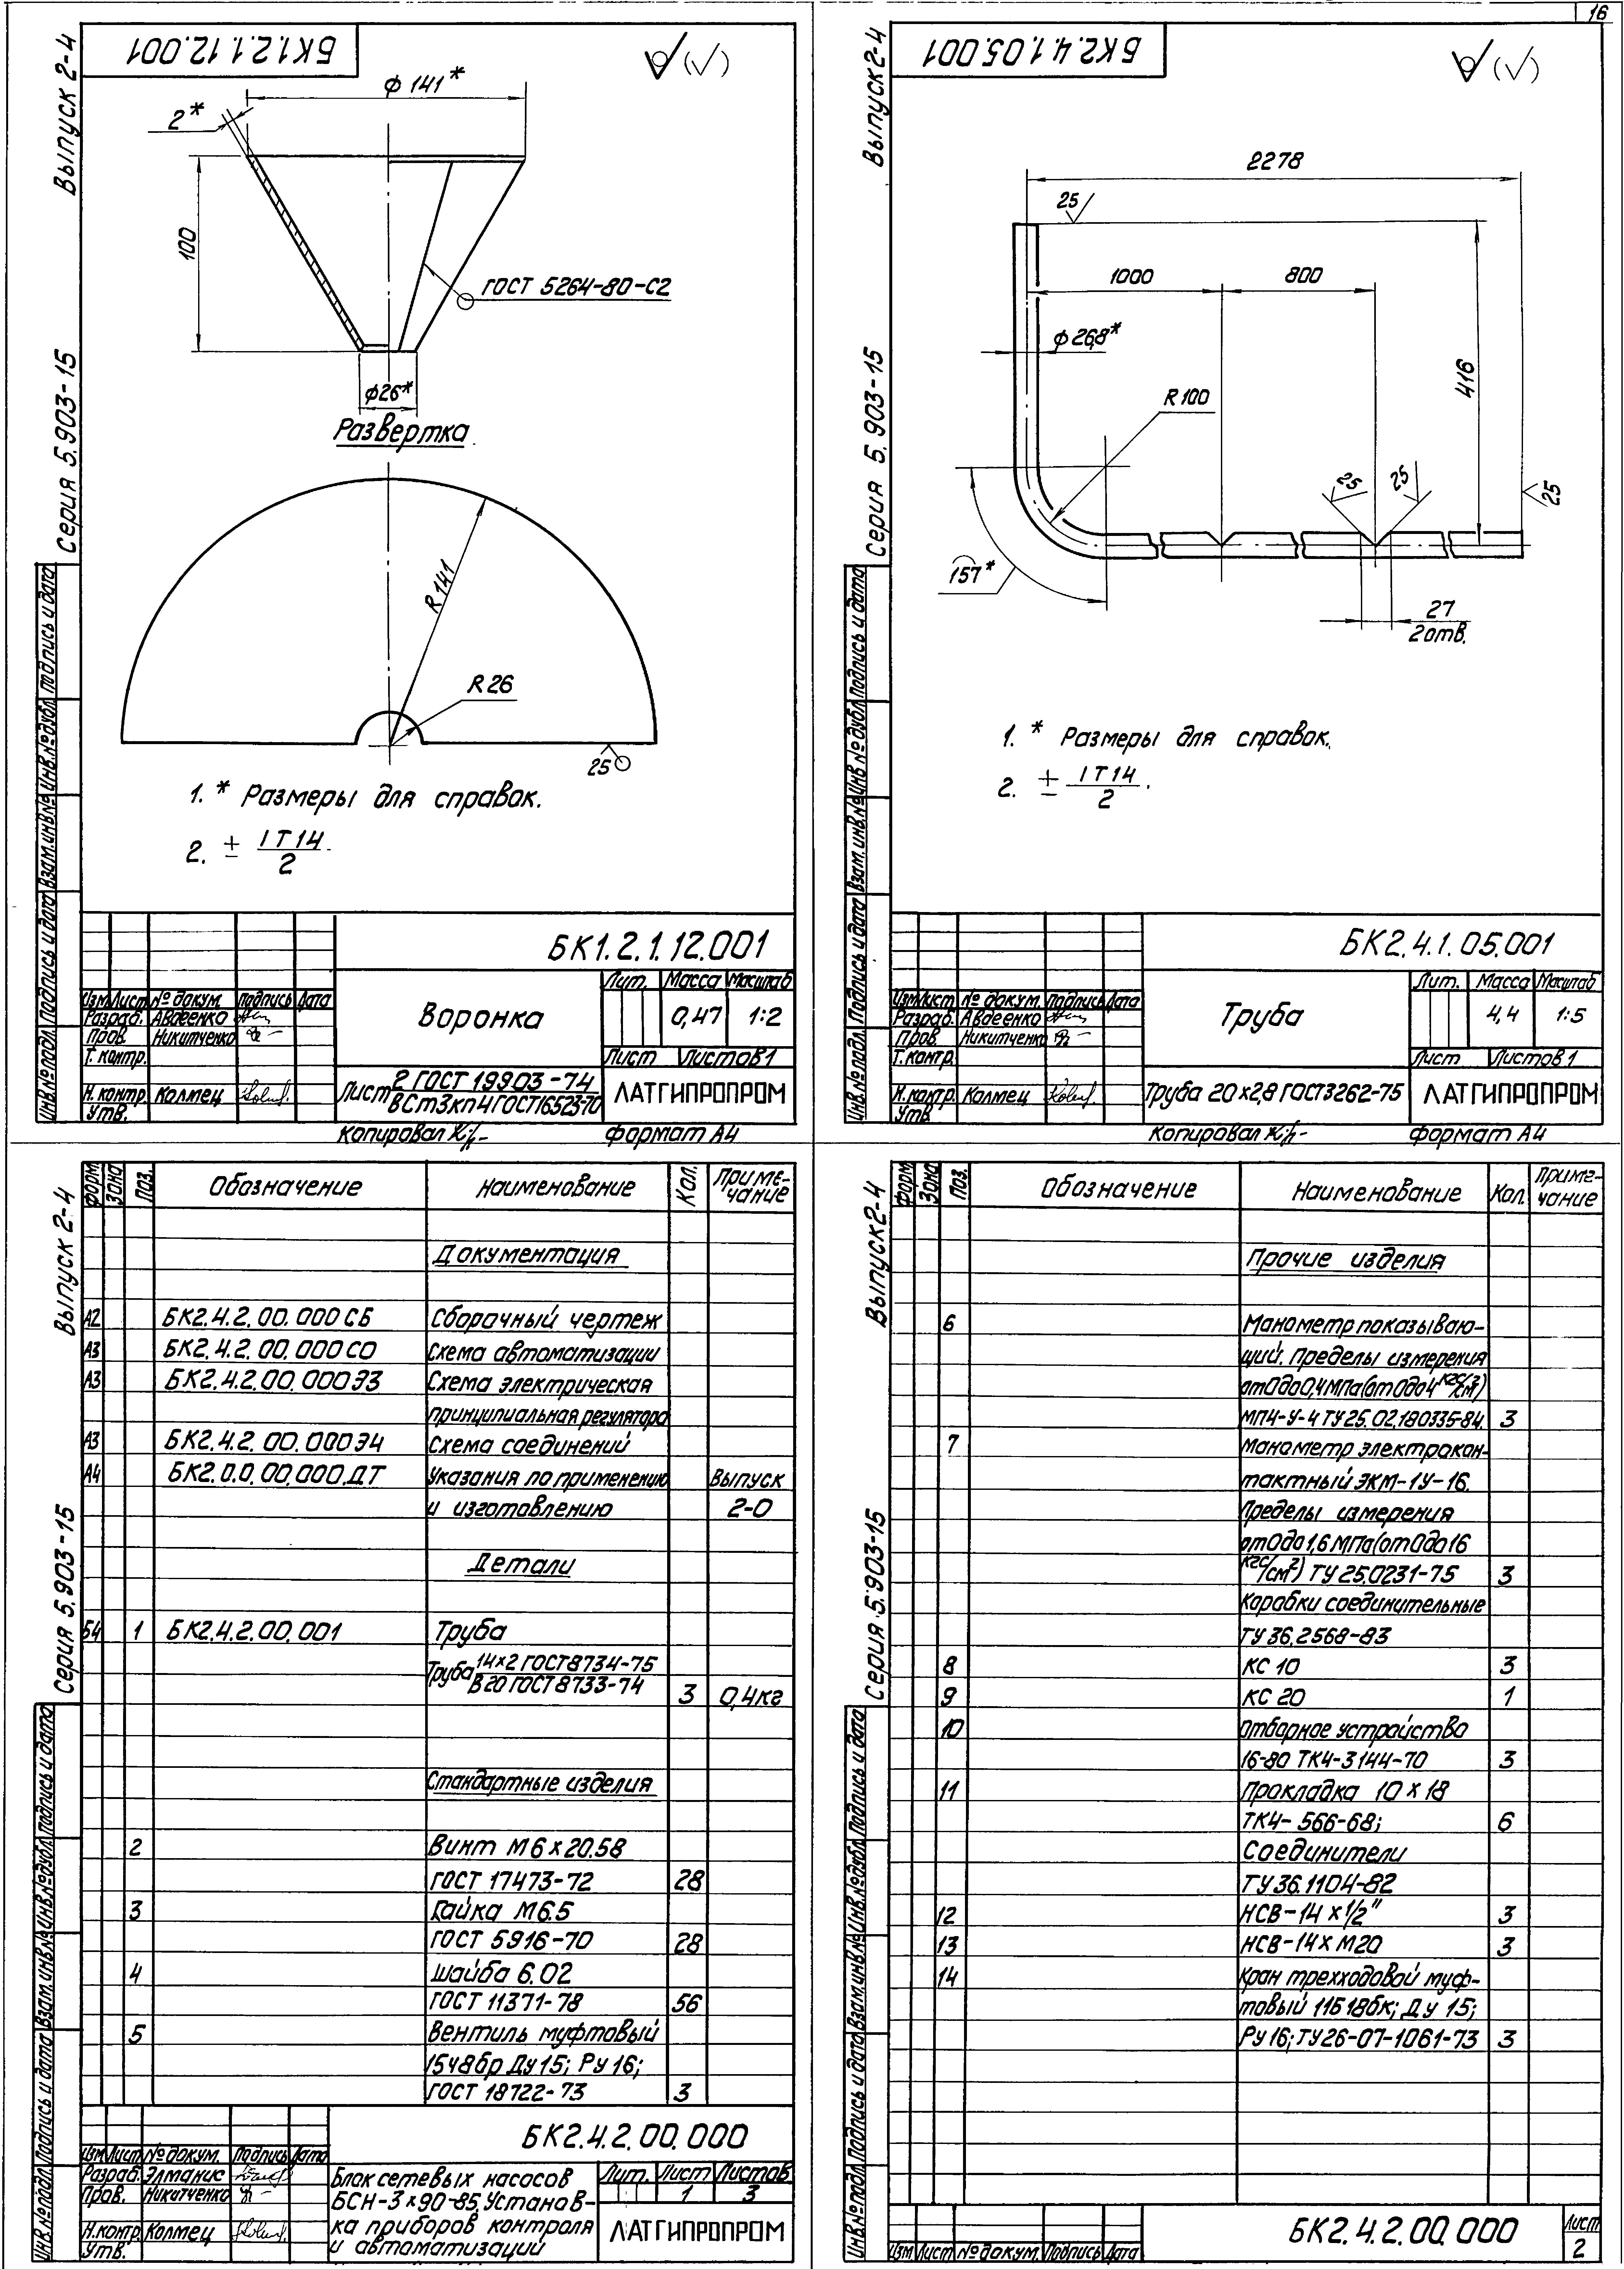 16
БК1.2.1.12.001
Выпуск 2-4
Серия 5.903-15
ф 141*
2*
100
ГОСТ 5264-80-С2
ф26*
Развертка
R 141
R 26
25
1. * Размеры для справок.
2. ± IT14/2
Инв.№ подл. Подпись и дата Взам.инв.№ Инв.№ дубл. Подпись и дата
БК1.2.1.12.001
Изм Лист № докум. Подпись Дата
Разраб. Авдеенко
Пров. Никитченко
Т. контр.
Н. контр. Колмец
Утв.
Воронка
Лит. Масса Масштаб
0,47 1:2
Лист Листов 1
Лист 2 ГОСТ 19903-74
ВСт3кп4 ГОСТ 16523-70
ЛАТГИПРОПРОМ
Копировал
формат А4
БК2.4.1.05.001
Выпуск 2-4
Серия 5.903-15
2278
25
1000
800
ф 26,8*
416
R 100
25
25
25
157*
27
2 отв.
1. * Размеры для справок.
2. ± IT14/2.
Инв.№ подл. Подпись и дата Взам.инв.№ Инв.№ дубл. Подпись и дата
БК2.4.1.05.001
Изм Лист № докум. Подпись Дата
Разраб. Авдеенко
Пров. Никитченко
Т. контр.
Н. контр. Колмец
Утв.
Труба
Лит. Масса Масштаб
4,4 1:5
Лист Листов 1
Труба 20×2,8 ГОСТ3262-75
ЛАТГИПРОПРОМ
Копировал
формат А4
Выпуск 2-4
Серия 5.903-15
Форм. Зона Поз. Обозначение Наименование Кол. Приме-
чание
Документация
А2 БК2.4.2.00.000СБ Сборочный чертеж
А3 БК2.4.2.00.000СО Схема автоматизации
А3 БК2.4.2.00.000Э3 Схема электрическая
принципиальная регулятора
А3 БК2.4.2.00.000Э4 Схема соединений
А4 БК2.0.0.00.000.ДТ Указания по применению Выпуск
и изготовлению 2-0
Детали
Б4 1 БК2.4.2.00.001 Труба
Труба 14×2 ГОСТ8734-75
В20 ГОСТ 8733-74 3 0,4кг
Стандартные изделия
2 Винт М6×20.58
ГОСТ 17473-72 28
3 Гайка М6.5
ГОСТ 5916-70 28
4 Шайба 6.02
ГОСТ 11371-78 56
5 Вентиль муфтовый
15ч8бр Ду 15; Ру 16;
ГОСТ 18722-73 3
Инв.№ подл. Подпись и дата Взам.инв.№ Инв.№ дубл. Подпись и дата
БК2.4.2.00.000
Изм Лист № докум. Подпись Дата
Разраб. Элманис
Пров. Никитченко
Н.контр. Колмец
Утв.
Блок сетевых насосов
БСН-3×90-85. Установ-
ка приборов контроля
и автоматизаций
Лит. Лист Листов
1 3
ЛАТГИПРОПРОМ
Выпуск 2-4
Серия 5.903-15
Форм. Зона Поз. Обозначение Наименование Кол. Приме-
чание
Прочие изделия
6 Манометр показываю-
щий. Пределы измерения
от 0 до 0,4 МПа (от 0 до 4 кгс/см²)
МП4-У-4 ТУ 25.02.180335-84. 3
7 Манометр электрокон-
тактный ЭКМ-1У-16.
Пределы измерения
от 0 до 1,6 МПа (от 0 до 16
кгс/см²) ТУ 25.0231-75 3
Коробки соединительные
ТУ 36.2568-83
8 КС 10 3
9 КС 20 1
10 Отборное устройство
16-80 ТК4-3144-70 3
11 Прокладка 10×18
ТК4-566-68; 6
Соединители
ТУ 36.1104-82
12 НСВ-14×1/2" 3
13 НСВ-14×М20 3
14 Кран трехходовой муф-
товый 11Б18бк; Ду 15;
Ру 16; ТУ26-07-1061-73 3
Инв.№ подл. Подпись и дата Взам.инв.№ Инв.№ дубл. Подпись и дата
Изм Лист № докум. Подпись Дата
БК2.4.2.00.000
Лист
2